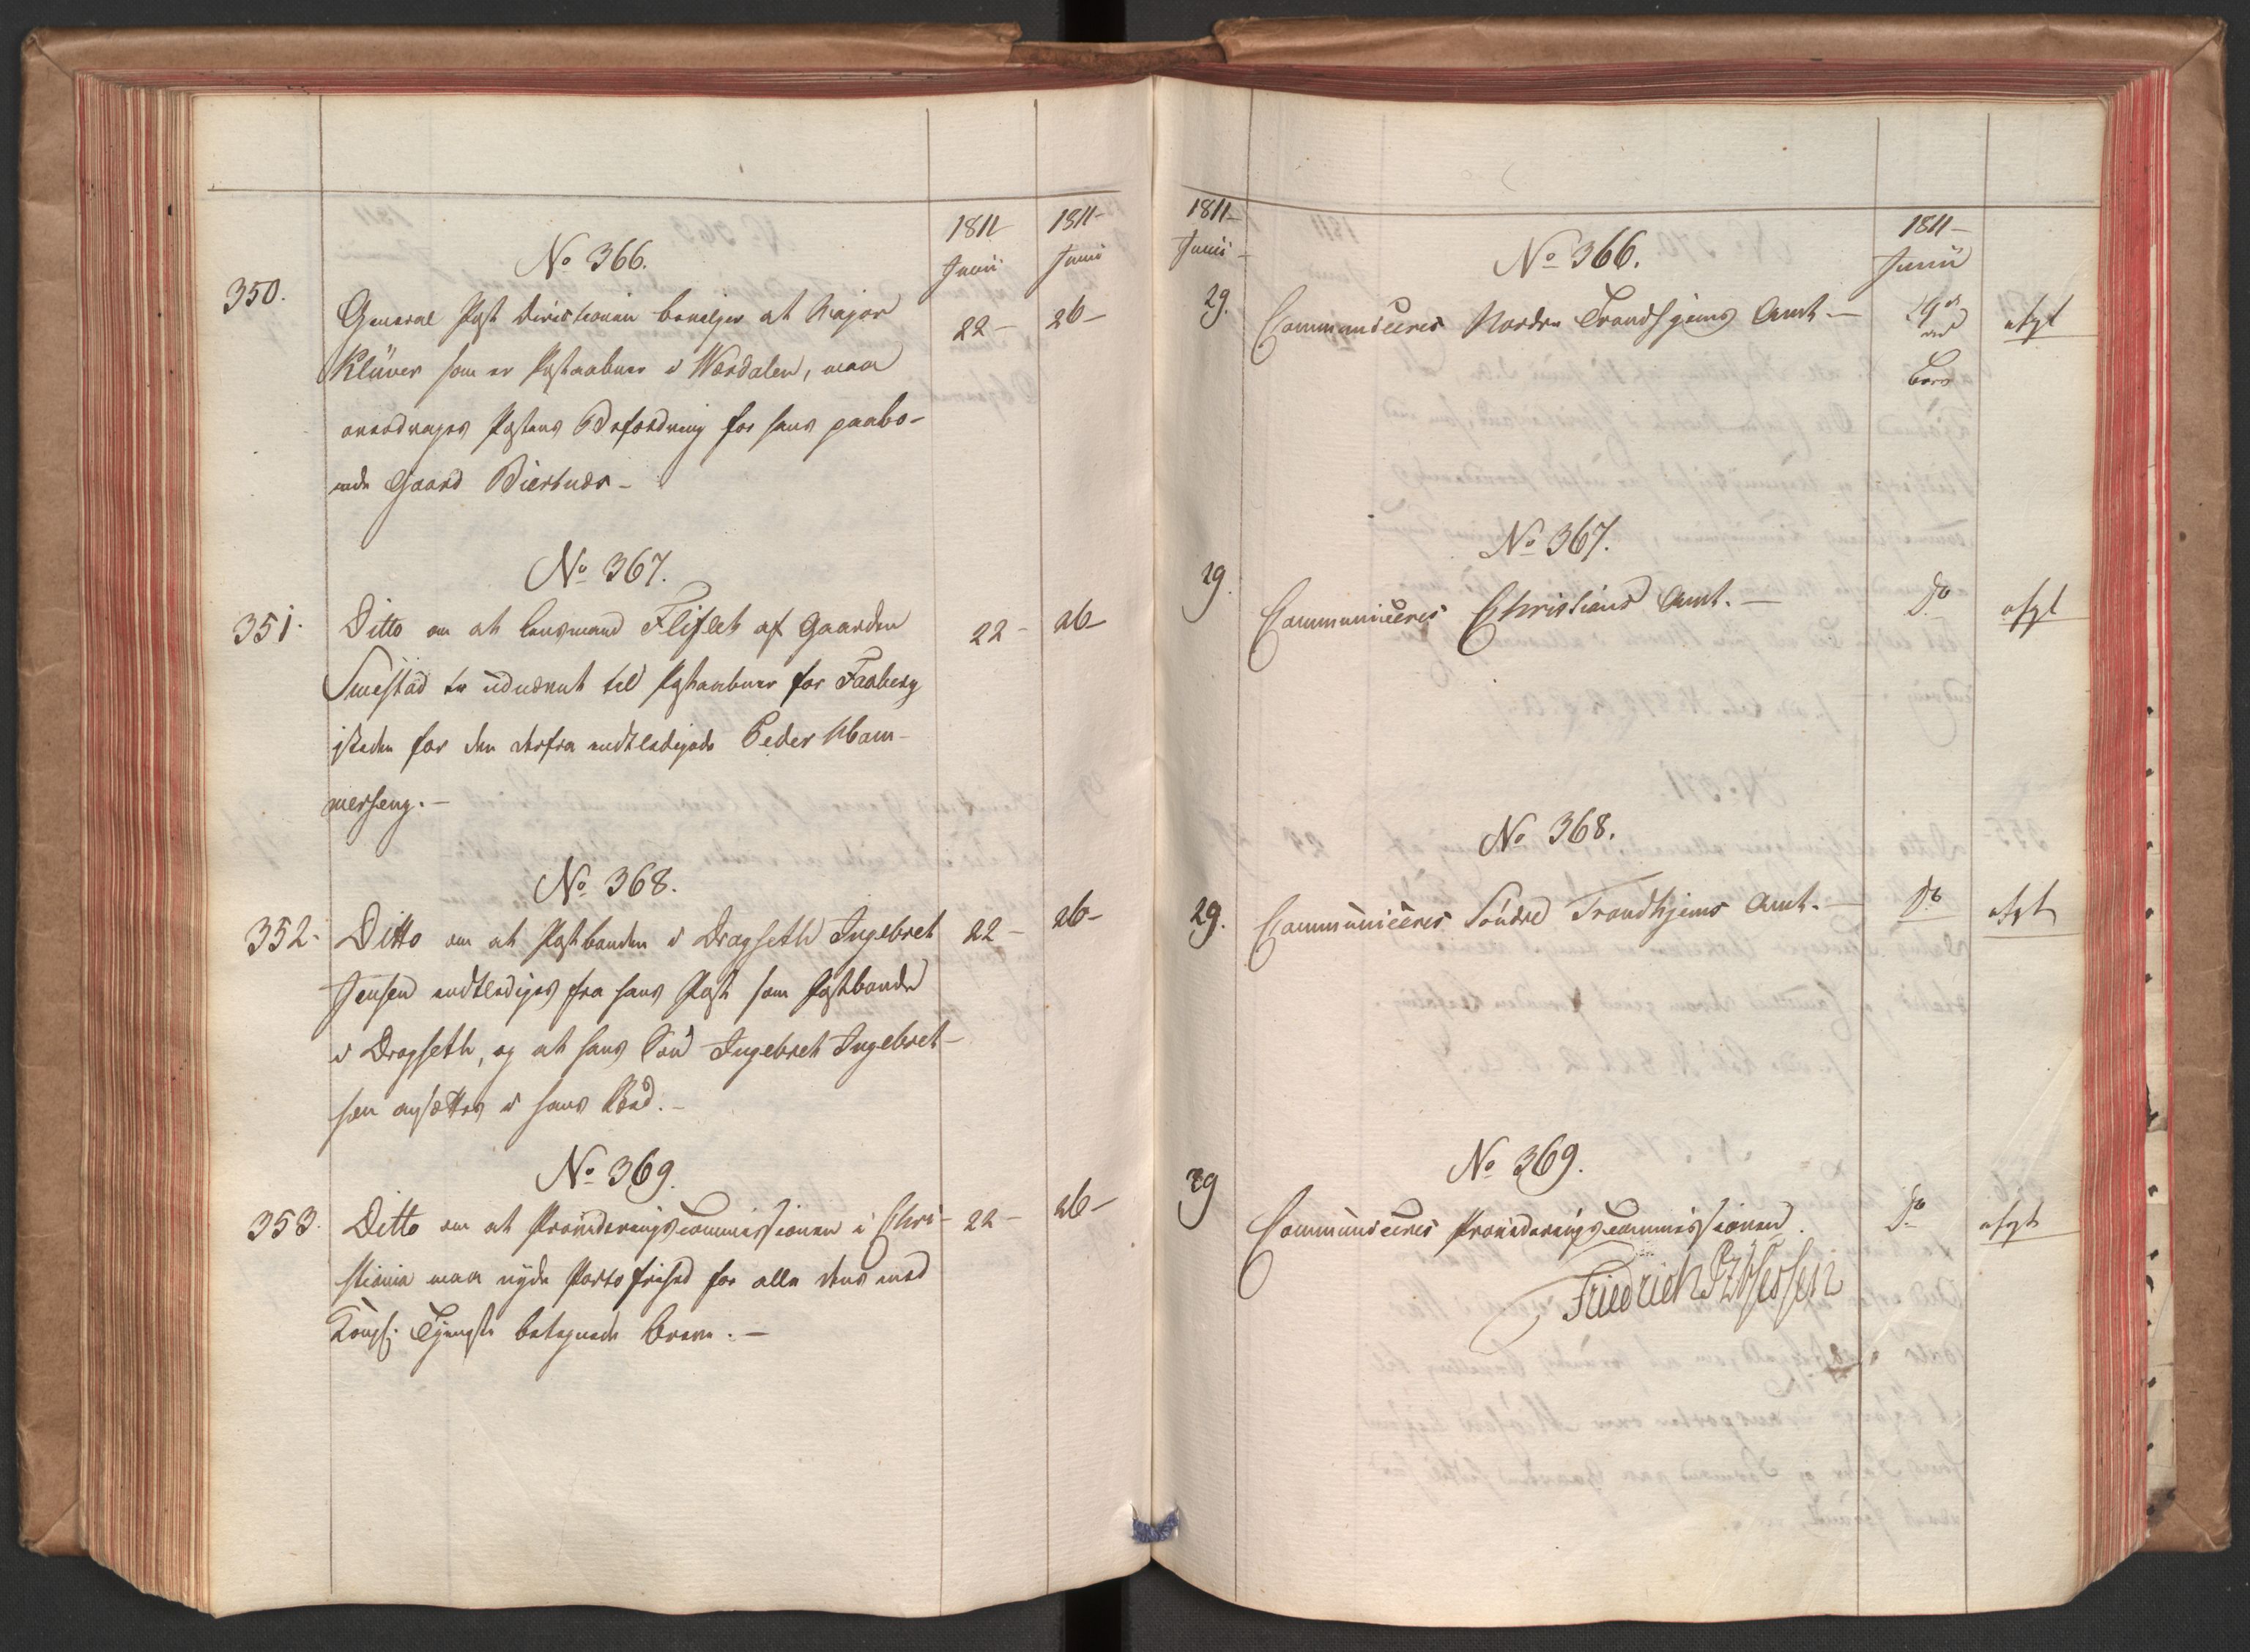 1811 1811
Junii Junii
No 366.
350. General Post Directionen bevilger at Major 22 - 26 -
Klüver som er Postaabner i Værdalen, maa
overdrages Postens Befordring for hans paaboe-
ende Gaard Biertnæs -
No 367.
351. Ditto om at Lensmand Fliflet af Gaarden 22 - 26 -
Smestad er udnævnt til Postaabner for Faaberg
isteden for den derfra entledigede Peder Ham-
merseng. -
No 368.
352. Ditto om at Postbonden i Dragseth Ingebret 22 - 26 -
Jensen entlediges fra hans Post som Postbonde
i Dragseth, og at hans Søn Ingebret Ingebret-
sen ansættes i hans Sted. -
No 369.
353. Ditto om at Provideringscommissionen i Chri- 22 - 26 -
stiania maa nyde Porto frihed for alle dens med
Kongl: Tjeneste betegnede Breve. -
1811 - 1811 -
Junii - Junii
No 366.
29. Communiceres Nordre Trondhjems Amt. - 29de afgt
No 367.
29. Communiceres Christians Amt. - Do afgt
No 368.
29. Communiceres Søndre Trondhjems Amt. - Do afgt
No 369.
29 Communiceres Provideringscommissionen. Do afgt
Friedrich